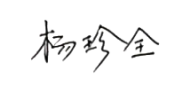 杨珍全